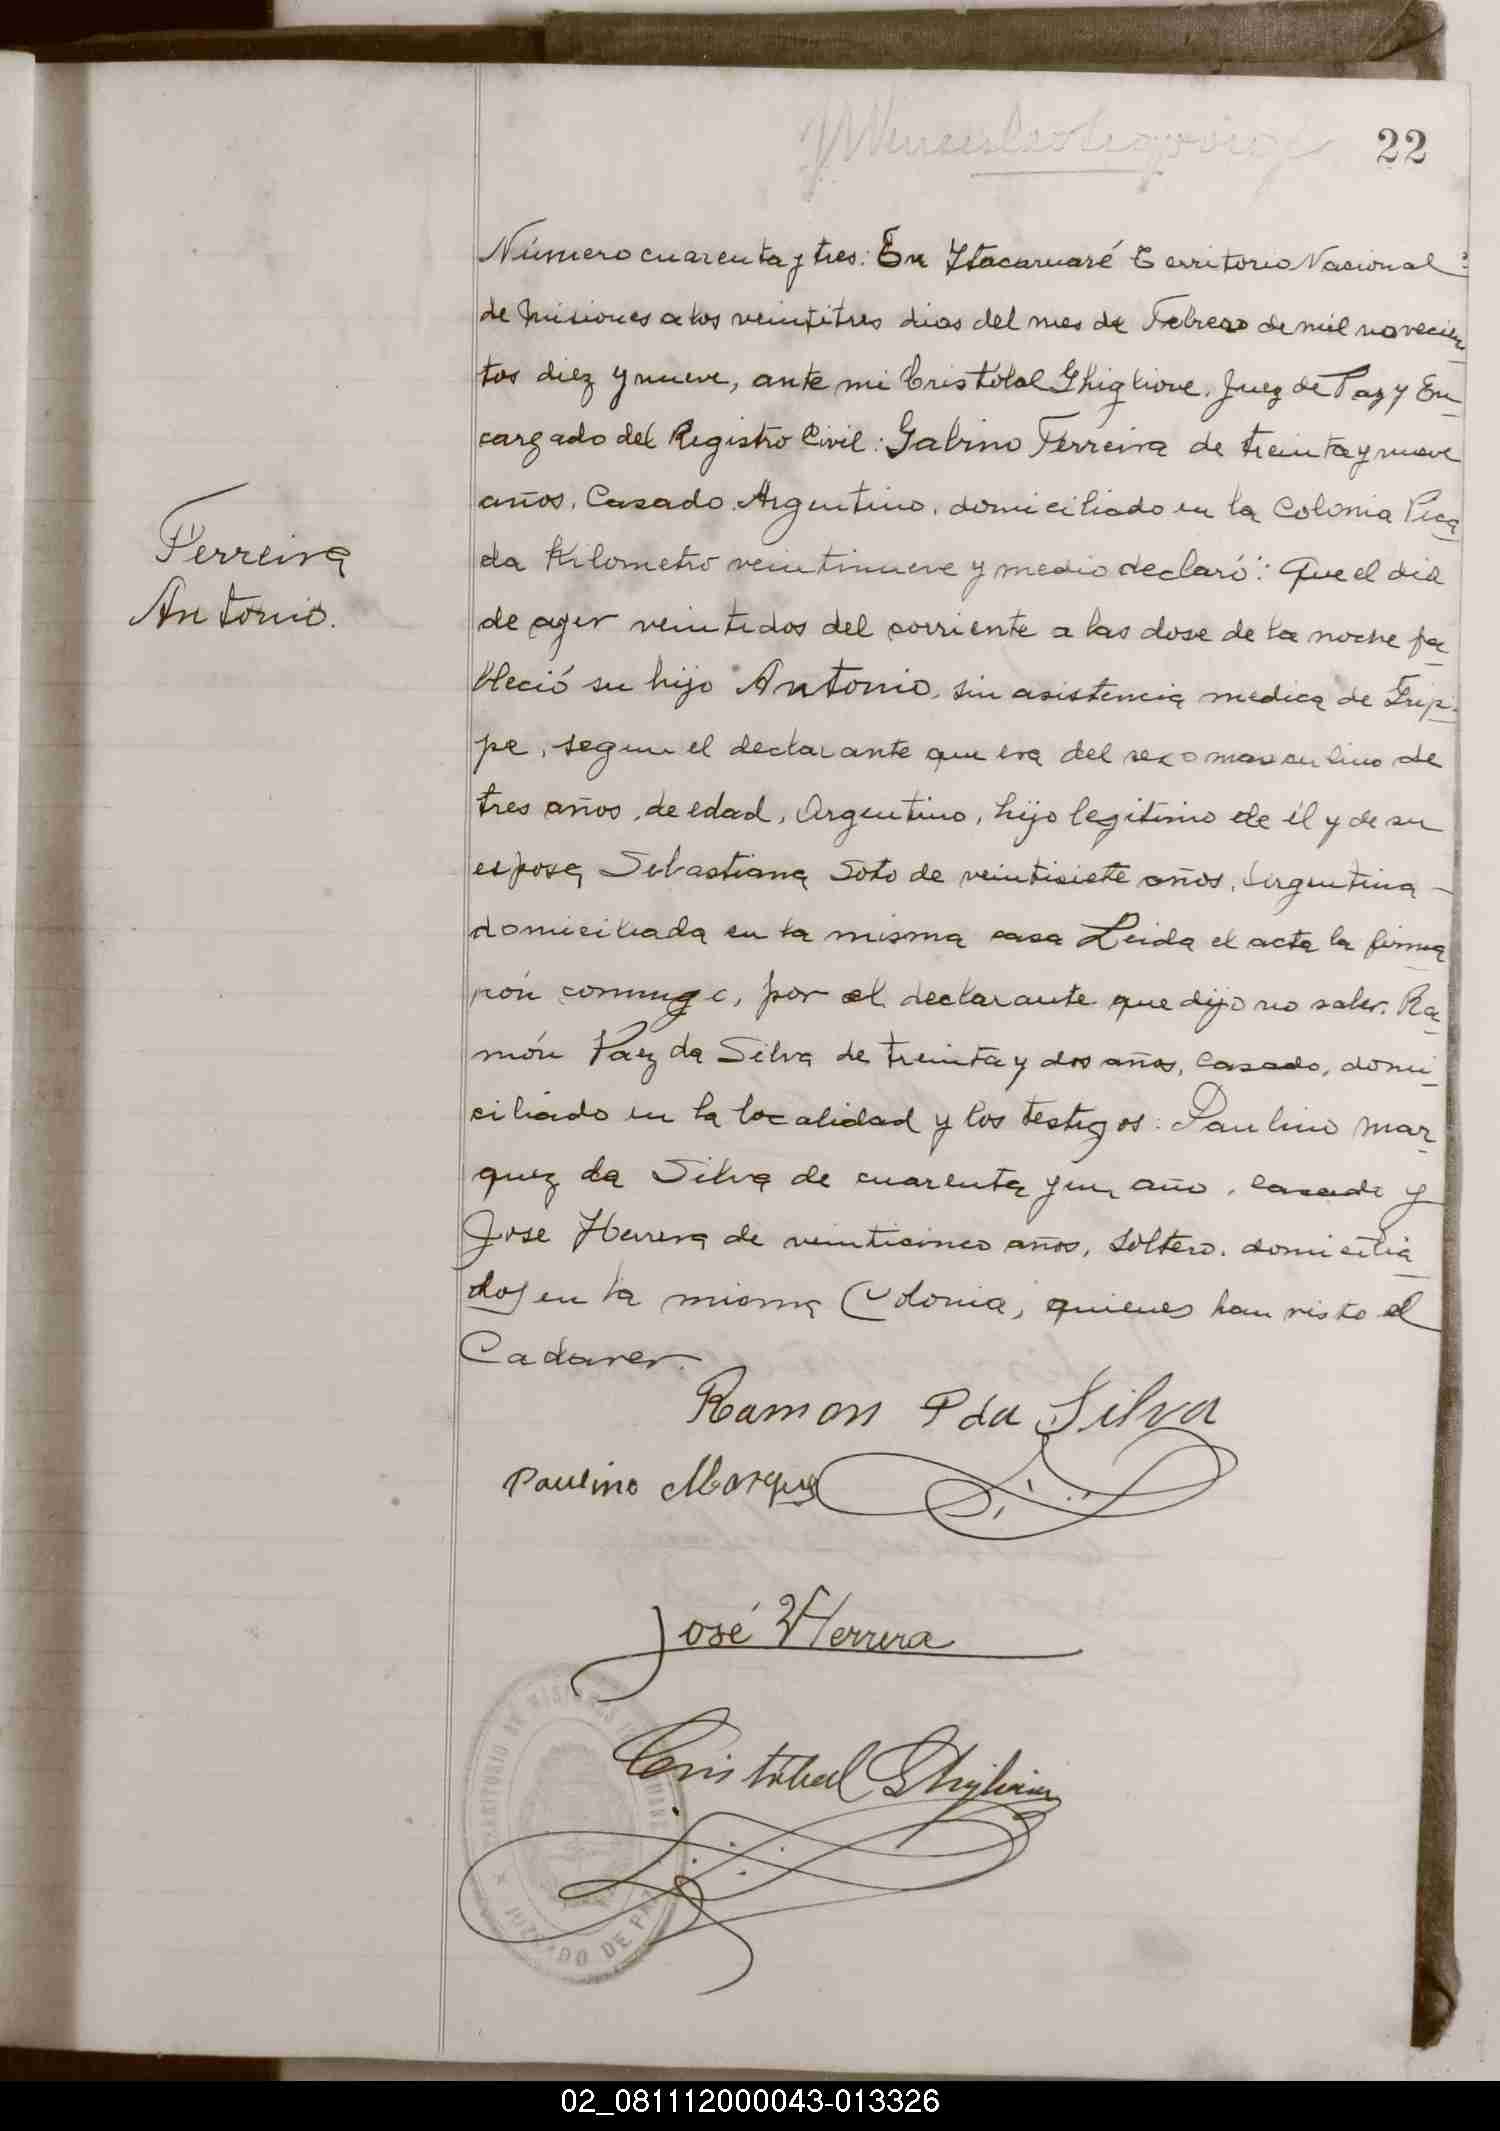 22
Número cuarenta y tres: En Itacaruaré Territorio Nacional
de Misiones a los veintitres dias del mes de Febrero de mil novecien-
tos diez y nueve, ante mi Cristobal Ghiglione, Juez de Paz y En-
cargado del Registro Civil: Gabino Ferreira de treinta y nueve
años, Casado, Argentino, domiciliado en la Colonia Pica-
da Kilometro veintinueve y medio declaró: Que el dia
de ayer veintidos del corriente a las dose de la noche fa-
lleció su hijo Antonio, sin asistencia medica de Grip-
pe, segun el declarante que era del sexo masculino de
tres años, de edad, Argentino, hijo legitimo de él y de su
esposa Sebastiana Soto de veintisiete años, Argentina -
domiciliada en la misma casa Leida el acta la firma-
rón conmigo, por el declarante que dijo no saber. Ra-
món Paez da Silva de treinta y dos años, casado, domi-
ciliado en la localidad y los testigos: Paulino Mar-
quez da Silva de cuarenta y un año, casado y
Jose Herrera de veinticinco años, soltero, domicilia-
dos en la misma Colonia, quienes han visto el
Cadaver.
Ferreira
Antonio.
Ramon P da Silva
Paulino Marquez
José Herrera
Cristóbal Ghiglione
TERRITORIO DE MISIONES
JUZGADO DE PAZ
02_081112000043-013326